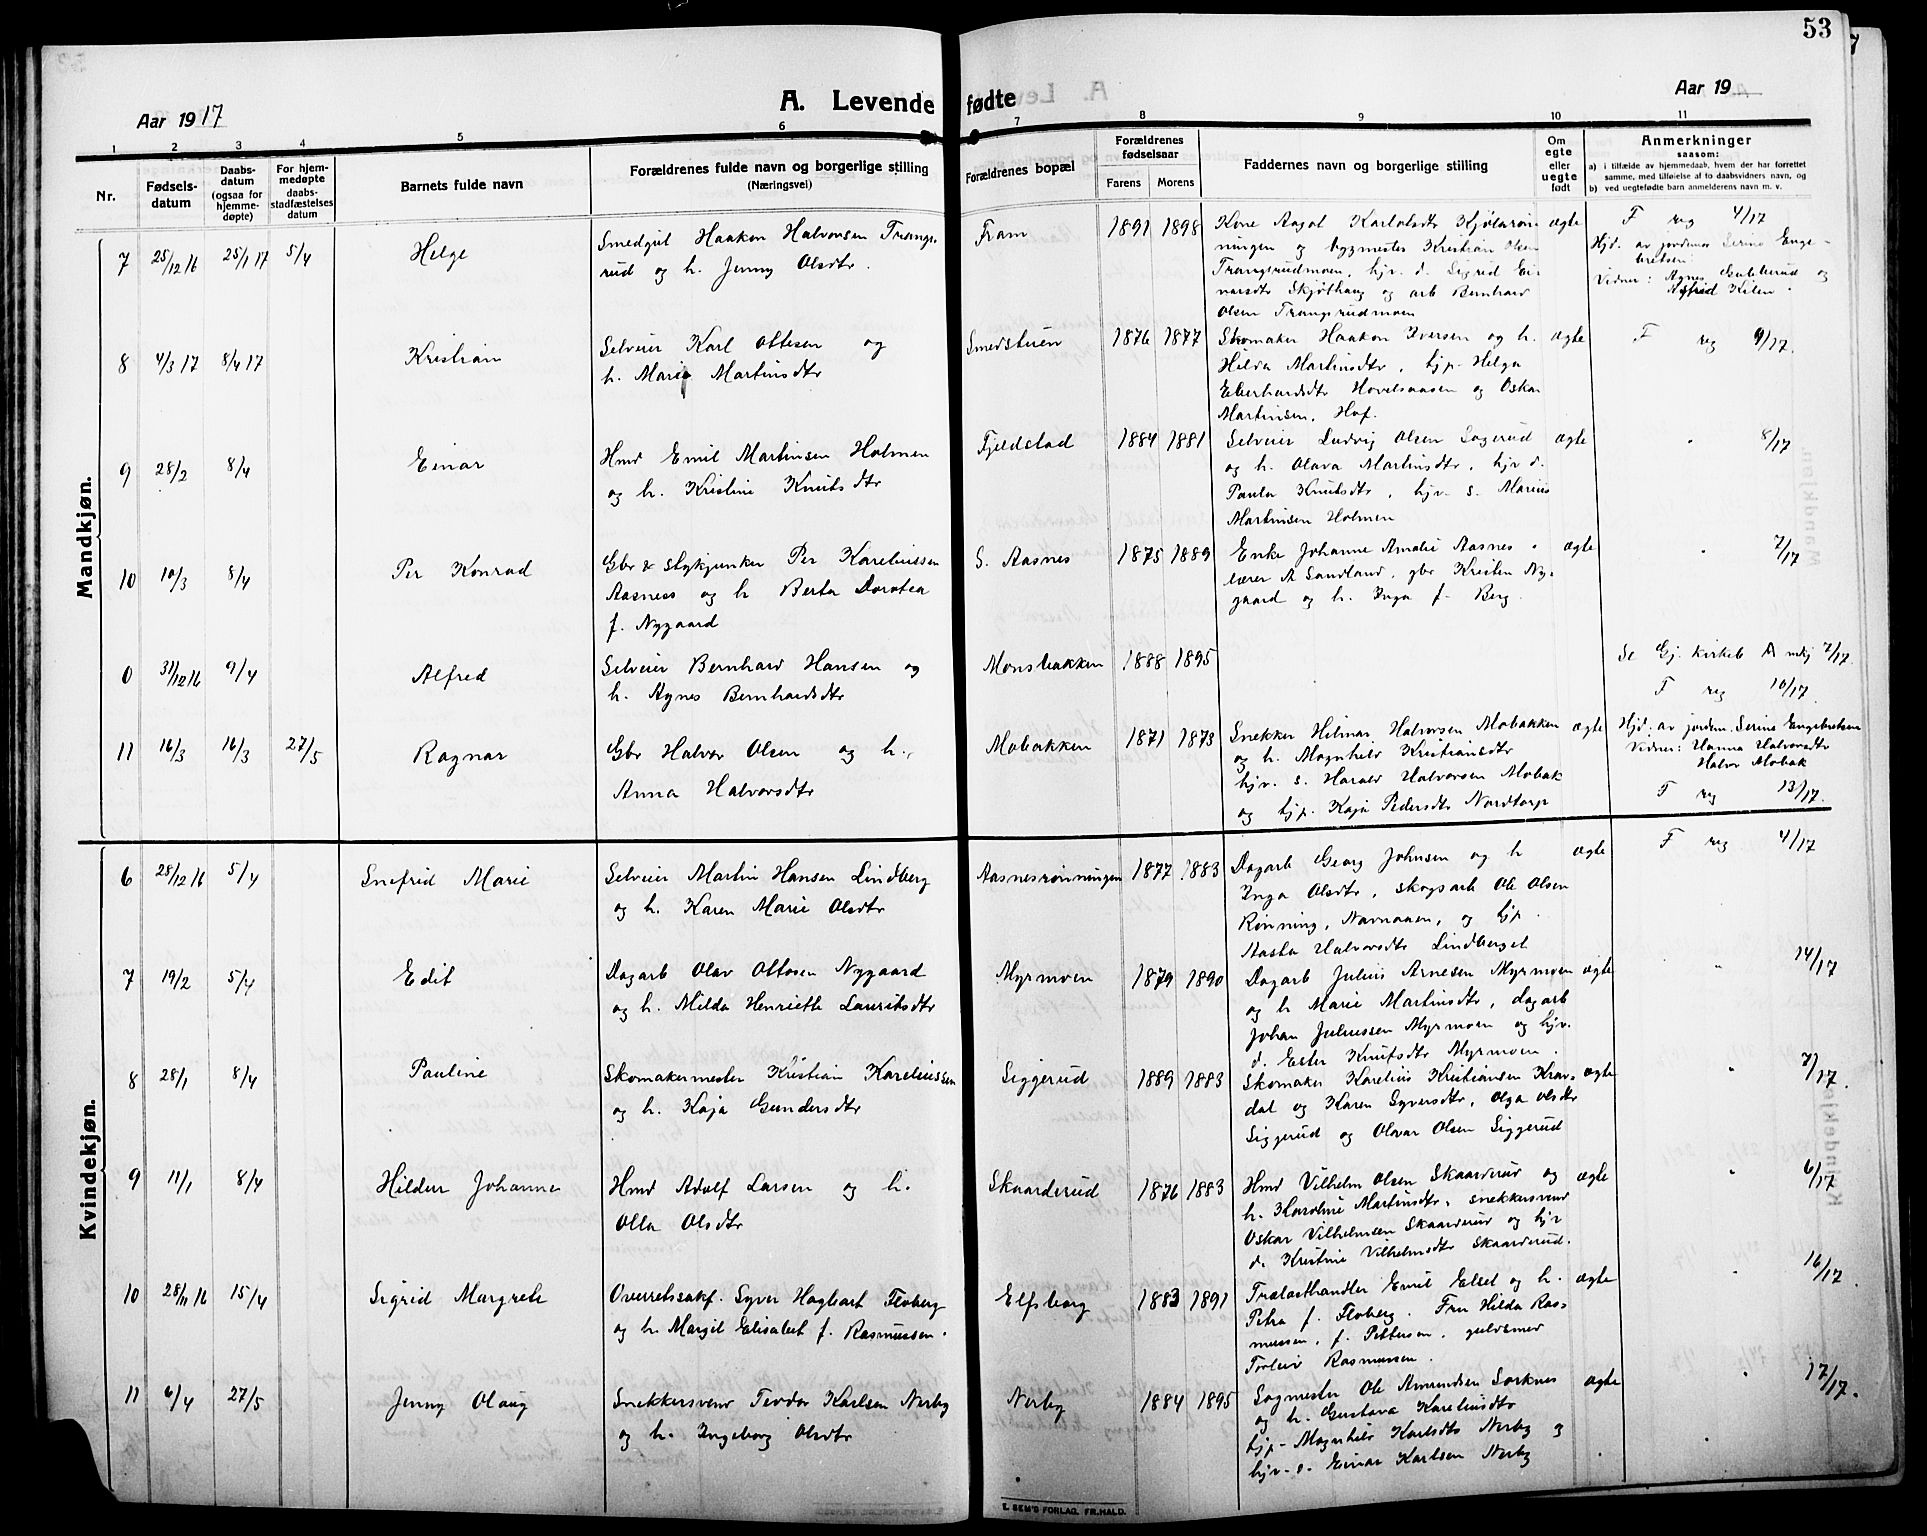 53
A. Levende fødte
Aar 1917
Aar 19
1 2 3 4 5 6 7 8 9 10 11
Nr.
Fødsels-
datum
Daabs-
datum
(ogsaa for
hjemme-
døpte)
For hjem-
medøpte
daabs-
stadfæstelses
datum
Barnets fulde navn
Forældrenes fulde navn og borgerlige stilling
(Næringsvei)
Forældrenes bopæl
Forældrenes
fødselsaar
Farens Morens
Faddernes navn og borgerlige stilling
Om
egte
eller
uegte
født
Anmerkninger
saasom:
a) i tilfælde av hjemmedaab, hvem der har forrettet
samme, med tilføielse af to daabsvidners navn, og
b) ved uegtefødte barn anmelderens navn m. v.
Mandkjøn.
7 25/12 16 25/1 17 5/4 Helge
Smedgut Haakon Halvorsen Trangs-
rud og h. Jenny Olsdtr.
Fram 1891 1898
Kone Aagot Karlotsdtr
ningen og bygmester Kristian Olsen
Trangsrudmoen, hjv. d. Sigrid Ei-
narsdtr Skjøthaug og arb Bernhard
Olsen Trangsrudmoen
ægte
F reg 4/17
Hjd. av jordmor Serine Enge-
bretsen
Vidner: Agnes og
Kilen.
8 4/3 17 8/4 17 Kristian
Selveier Karl Ottesen og
h. Marie Martinsdtr
Smedstuen 1876 1877
Skomaker Haakon Iversen og h.
Hilda Martinsdtr, hjp. Helga
Eberhardsdtr Hovelsaasen og Oskar
Martinsen, Hof.
ægte
F reg 9/17.
9 28/2 8/4 Einar
Hmd Emil Martinsen Holmen
og h. Kristine Knutsdtr
Fjeldstad 1884 1881
Selveier Ludvig Olsen Sagerud
og h. Olava Martinsdtr, hjv d.
Paula Knutsdtr, hjv. s. Marius
Martinsen Holmen
ægte
" 8/17
10 10/3 8/4 Per Konrad
Gbr & Per Kareliussen
Aasnes og h Berta Dorotea
f. Nygaard
S. Aasnes 1875 1889
Enke Johanne Amalie Aasnes.
lærer A Sandland, gbr Kristen Ny-
gaard og h. Inga f. Berg.
ægte
" 7/17
0 31/12 16 9/4 Alfred
Selveier Bernhard Hansen og
h. Agnes Bernhardsdtr
Monsbakken 1888 1895
Se Gj. kirkeb A mkj 2/17.
F reg 10/17.
11 16/3 16/3 27/5 Ragnar
Gbr Halvor Olsen og h.
Anna Halvorsdtr
Mobakken 1871 1873
Snekker Hilmar Halvorsen Mobakken
og h. Magnhild Kristiansdtr
hjv. s. Harald Halvorsen Mobak
og hjp. Kaja Pedersdtr Nordtorp
ægte
Hjd. av jordm. Serine Engebretsen
Vidner: Hanna Halvorsdtr
Halvor Mobak
F reg 13/17.
Kvindekjøn.
6 28/12 16 5/4 Snefrid Marie
Selveier Martin Hansen Lindberg
og h. Karen Marie Olsdtr
Aasnesrønningen 1877 1883
Dagarb Georg Johnsen og h
Inga Olsdtr, skogsarb Ole Olsen
Rønning, Navnaaen, og hjp.
Aasta Halvorsdtr Lindberget
ægte
F reg 4/17
7 19/2 5/4 Edit
Dagarb Olav Ottosen Nygaard
og h. Milda Henriette Lauritsdtr
Myrmoen 1879 1890
Dagarb Julius Arnesen Myrmoen
og h Marie Martinsdtr, dagarb
Johan Juliussen Myrmoen og hjv.
d. Ester Knutsdtr Myrmoen.
ægte
" 14/17
8 28/1 8/4 Pauline
Skomakermester Kristian Kareliussen
og h. Kaja Gundersdtr
Siggerud 1889 1883
Skomaker Karelius Kristiansen Krav-
dal og Karen Syversdtr, Olga Olsdtr
Siggerud og Olavar Olsen Siggerud
ægte
" 7/17.
9 11/1 8/4 Hildur Johanne
Hmd Adolf Larsen og h.
Olla Olsdtr
Skaarderud 1876 1883
Hmd Vilhelm Olsen Skaarderud og
h. Karoline Martinsdtr, snekkersvend
Oskar Vilhelmsen Skaarderud og hjv
d. Kristine Vilhelmsdtr Skaarderud.
ægte
" 6/17
10 28/11 16 15/4 Sigrid Margrete
Overretssakf. Syver Hagbart Floberg
og h. Margit Elisabet f. Rasmussen.
Elfsborg 1883 1891
Trælasthandler Emil Elset og h.
Petra f. Floberg. Fru Hilda Ras-
mussen, f. Pettersen, guldsmed
Torleiv Rasmussen.
ægte
" 16/17.
11 6/4 27/5 Jenny Olaug
Snekkersvend Teodor Karlsen Nerby
og h. Ingeborg Olsdtr
Nerby 1884 1895
Sagmester Ole Amundsen Sorknes
og h. Gustava Kareliusdtr
hjp. Magnhild Karlsdtr Nerby og
hjv. s. Einar Karlsen Nerby
ægte
" 17/17.
E. SEM'S FORLAG. FR.HALD.